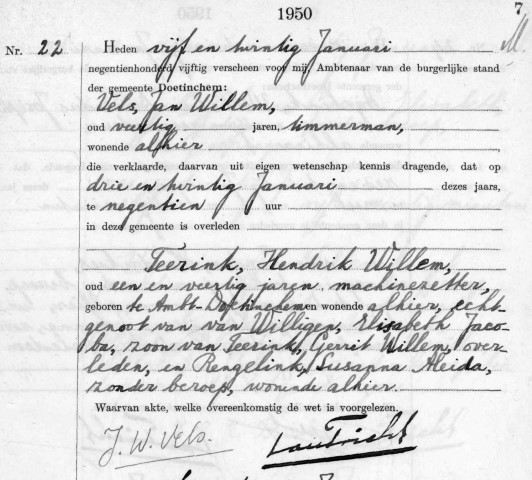 1950
7
Nr. 22
Heden vijf en twintig Januari
negentienhonderd vijftig verscheen voor mij Ambtenaar van de burgerlijke stand
der gemeente Doetinchem:
Vels, Jan Willem,
oud veertig jaren, timmerman,
wonende alhier
die verklaarde, daarvan uit eigen wetenschap kennis dragende, dat op
drie en twintig Januari dezes jaars,
te negentien uur
in deze gemeente is overleden
Teerink, Hendrik Willem,
oud een en veertig jaren, machinezetter,
geboren te Ambt-Doetinchem en wonende alhier, echt-
genoot van van Willigen, Elisabeth Jaco-
ba, zoon van Teerink, Gerrit Willem, over-
leden, en Rengelink, Susanna Aleida,
zonder beroep, wonende alhier.
Waarvan akte, welke overeenkomstig de wet is voorgelezen.
J. W. Vels.